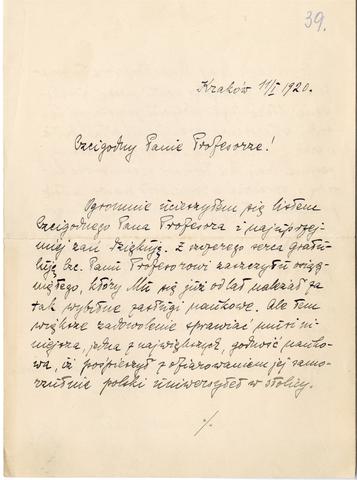 39.
Kraków 11/I 1920.
Czcigodny Panie Profesorze!
Ogromnie ucieszyłem się listem
Czcigodnego Pana Profesora i najuprzej-
miej zań dziękuję. Z szczerego serca gratu-
luję Cz. Panu Profesorowi zaszczytu osią-
gniętego, który Mu się już od lat należał za
tak wybitne zasługi naukowe. Ale tem
większe zadowolenie sprawiać musi ni-
niejsza, jedna z największych, godność nauko-
wa, iż pospieszył z ofiarowaniem jej samo-
rzutnie polski uniwersytet w stolicy.
./.